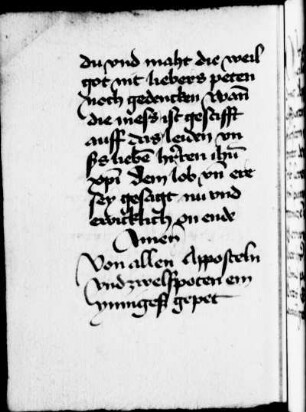 du vnd maht die weil
got nit liebers peten
noch gedencken wan̄
die mess ist gestifft
auff das leiden vn
ſs̄ liebē hr̄ren ihū
xp̄i dem lob vn̄ ere
sey gesagt nu vnd
ewicklich on ende
Amen
Von allen Apposteln
vnd zwelfpoten ein
ynnigess gepet